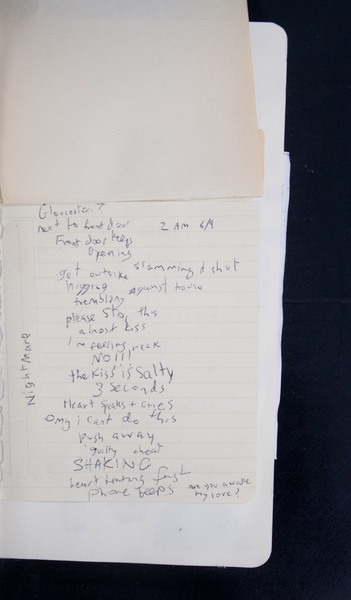 Gloucester?
next to front door 2 AM 6/9
Front door keeps
opening
get outside slamming d shut
hugging against house
trembling
please stop this
almost kiss
I'm feeling weak
NO!!!
the Kiss is Salty
3 seconds
Heart speaks + cries
omg i cant do this
Push away
guilty cheat
SHAKING
heart beating fast
phone beeps are you awake
my love?
Nightmare